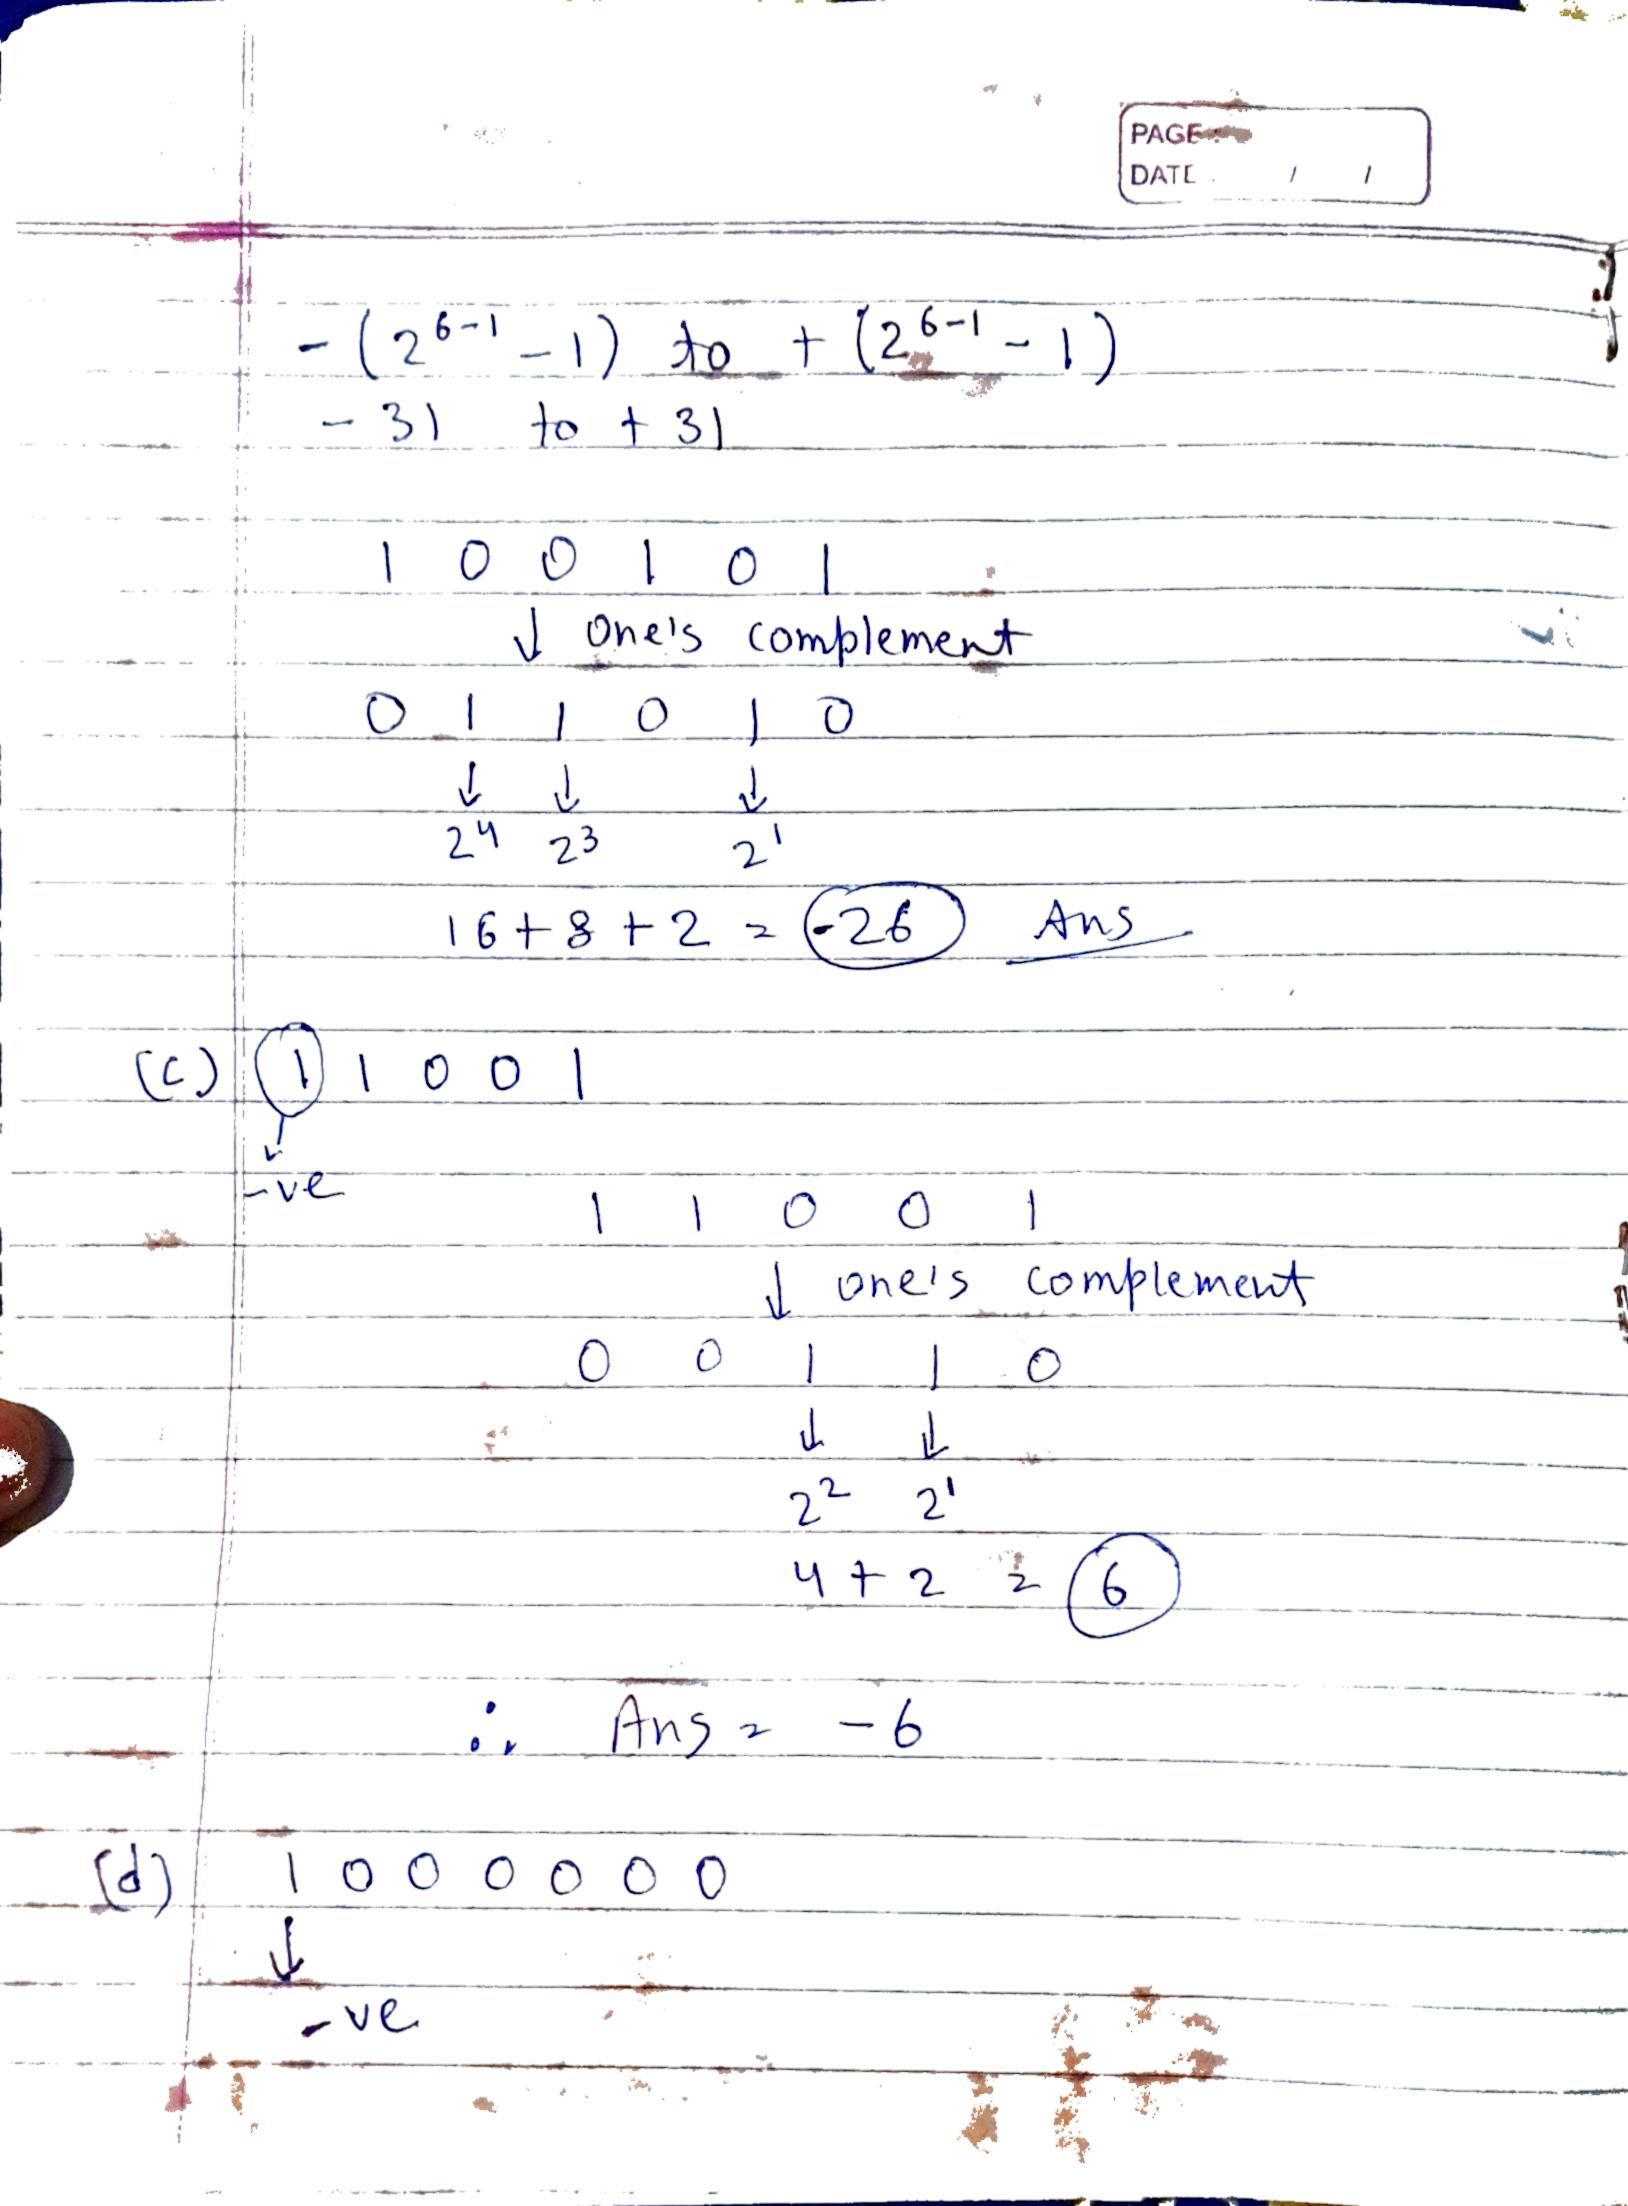 PAGE
DATE / /
- (2^{6-1} - 1) to + (2^{6-1} - 1)
- 31 to + 31
1 0 0 1 0 1
↓ one's complement
0 1 1 0 1 0
↓ ↓ ↓
2^4 2^3 2^1
16 + 8 + 2 = -26 Ans
(c) 1 1 0 0 1
-ve
1 1 0 0 1
↓ one's complement
0 0 1 1 0
↓ ↓
2^2 2^1
4 + 2 = 6
∴ Ans = -6
(d) 1 0 0 0 0 0 0
↓
-ve